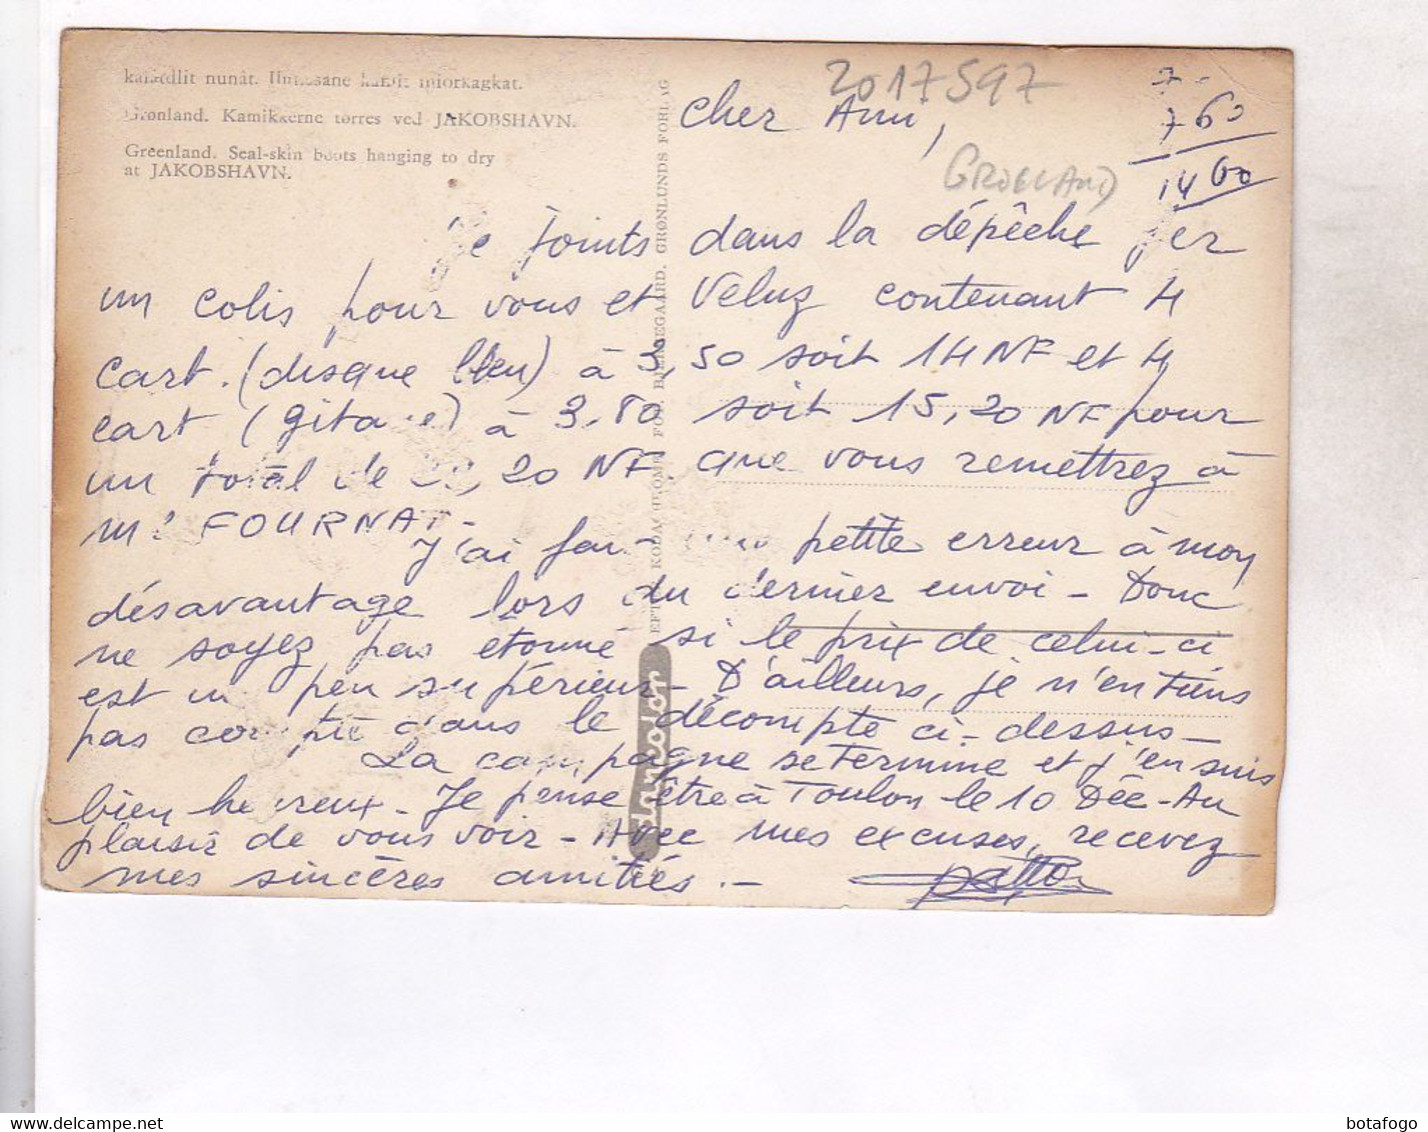 kalâtdlit nunât. kamit
Grønland. Kamikkerne tørres ved JAKOBSHAVN.
Greenland. Seal-skin boots hanging to dry
at JAKOBSHAVN.
2017597
GROELAND
7 60
14 60
Cher Ami,
Je joints dans la dépêche per
un colis pour vous et Veluz contenant 4
cart. (disque bleu) à 3,50 soit 14 NF et 4
cart (gitane) à 3.80 soit 15,20 NF pour
un total de 29,20 NF que vous remettrez à
Mr FOURNAT-
J'ai fait une petite erreur à mon
désavantage lors du dernier envoi - Donc
ne soyez pas etonné si le prix de celui-ci
est un peu supérieur - D'ailleurs, je n'en tiens
pas compte dans le décompte ci-dessus -
La campagne se termine et j'en suis
bien heureux - Je pense être à Toulon le 10 Déc - Au
plaisir de vous voir - Avec mes excuses, recevez
mes sincères amitiés. -
KODACHROME FOT. BJERREGAARD. GRØNLUNDS FORLAG
dancolor
botafogo